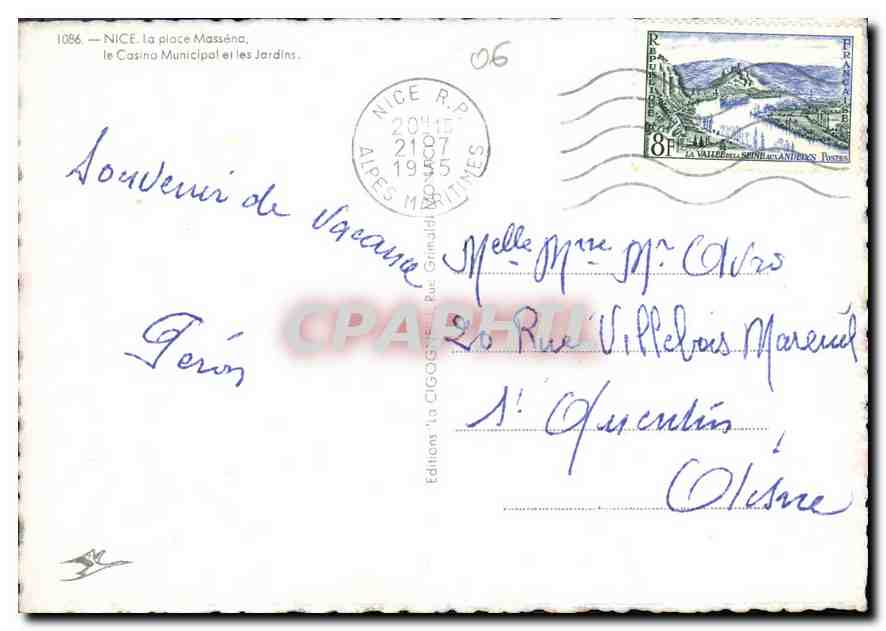 1086. — NICE. La place Masséna,
le Casino Municipal et les Jardins.
06
RÉPUBLIQUE FRANÇAISE
8F
LA VALLÉE DE LA SEINE AUX ANDELYS POSTES
NICE R.P.
20H15
21 07
1955
ALPES MARITIMES
Souvenir de Vacance
Melle Mme Mr
20 Rue Villebois Mareuil
St Quentin
Aisne
Editions "La CIGOGNE" Rue Grimaldi MONACO
CPAPHIL